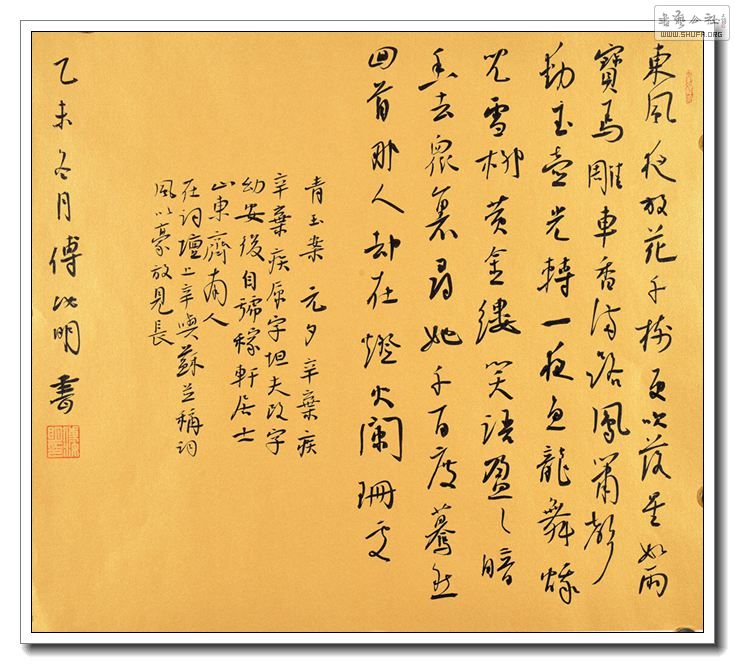 東風夜放花千樹更吹落星如雨
寶馬雕車香滿路鳳簫聲
動玉壺光轉一夜魚龍舞蛾
兒雪柳黃金縷笑語盈〻暗
香去眾裏尋她千百度驀然
回首那人却在燈火闌珊處
青玉案 元夕 辛棄疾
辛棄疾原字坦夫改字
幼安後自號稼軒居士
山東齊南人
在詞壇上辛與蘇並稱詞
風以豪放見長
乙未冬月傅明書
WWW.SHUFA.ORG